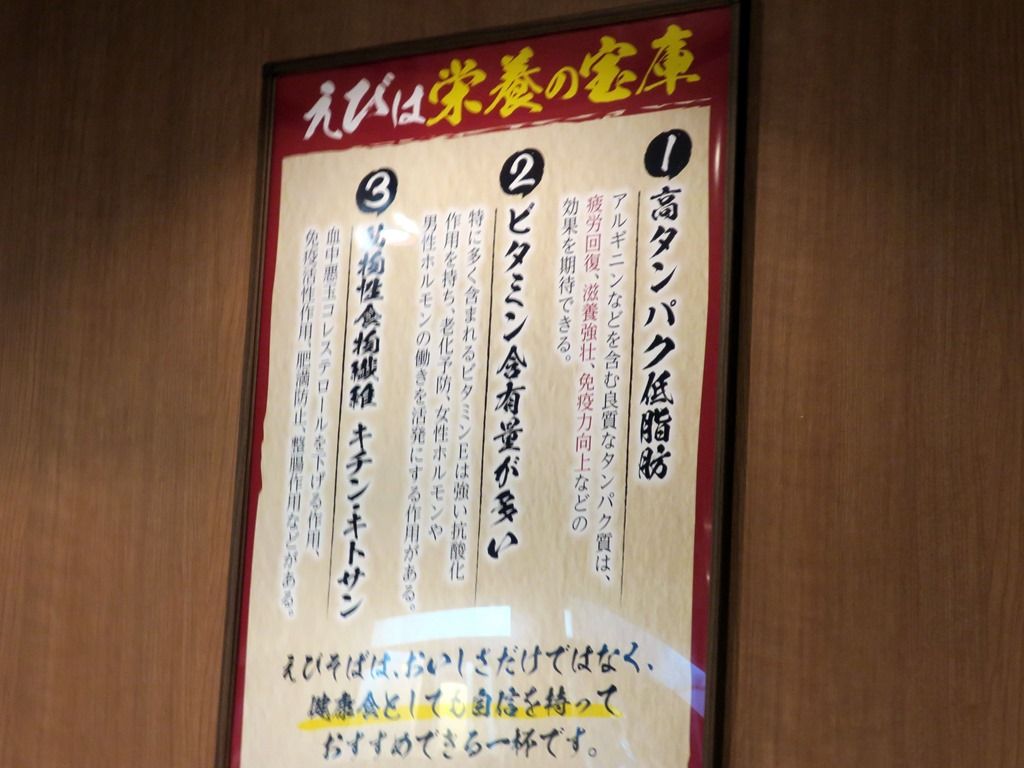 えびは栄養の宝庫
1
高タンパク低脂肪
アルギニンなどを含む良質なタンパク質は、
疲労回復、滋養強壮、免疫力向上などの
効果を期待できる。
2
ビタミン含有量が多い
特に多く含まれるビタミンEは強い抗酸化
作用を持ち、老化予防、女性ホルモンや
男性ホルモンの働きを活発にする作用がある。
3
動物性食物繊維 キチン・キトサン
血中悪玉コレステロールを下げる作用、
免疫活性作用、肥満防止、整腸作用などがある。
えびそばは、おいしさだけではなく、
健康食としても自信を持って
おすすめできる一杯です。